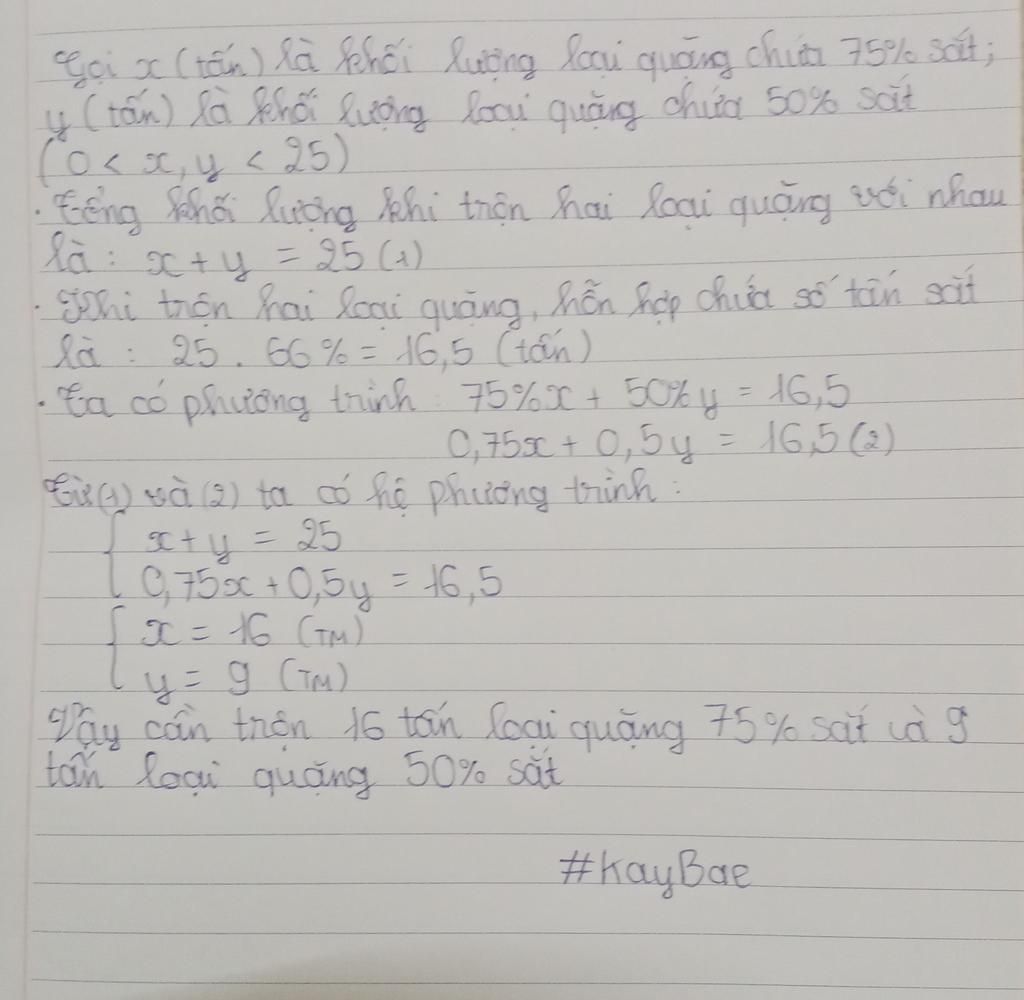 Gọi x (tấn) là khối lượng loại quặng chứa 75% sắt;
y (tấn) là khối lượng loại quặng chứa 50% sắt
(0 < x, y < 25)
. Tổng khối lượng khi trộn hai loại quặng với nhau
là : x + y = 25 (1)
. Khi trộn hai loại quặng, hỗn hợp chứa số tấn sắt
là : 25 . 66% = 16,5 (tấn)
. Ta có phương trình : 75%x + 50%y = 16,5
0,75x + 0,5y = 16,5 (2)
Từ (1) và (2) ta có hệ phương trình :
{ x + y = 25
0,75x + 0,5y = 16,5
{ x = 16 (TM)
y = 9 (TM)
Vậy cần trộn 16 tấn loại quặng 75% sắt và 9
tấn loại quặng 50% sắt
#KayBae